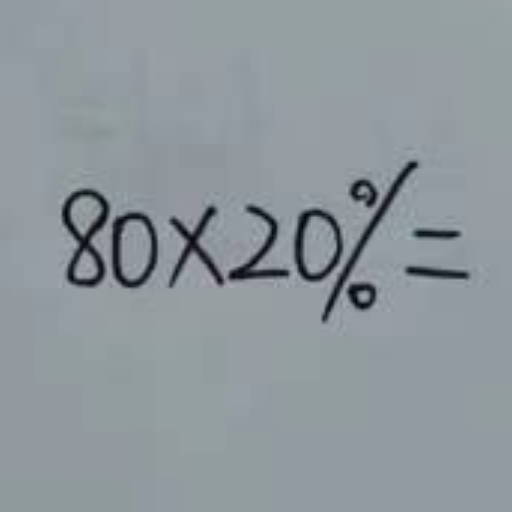 80×20%=